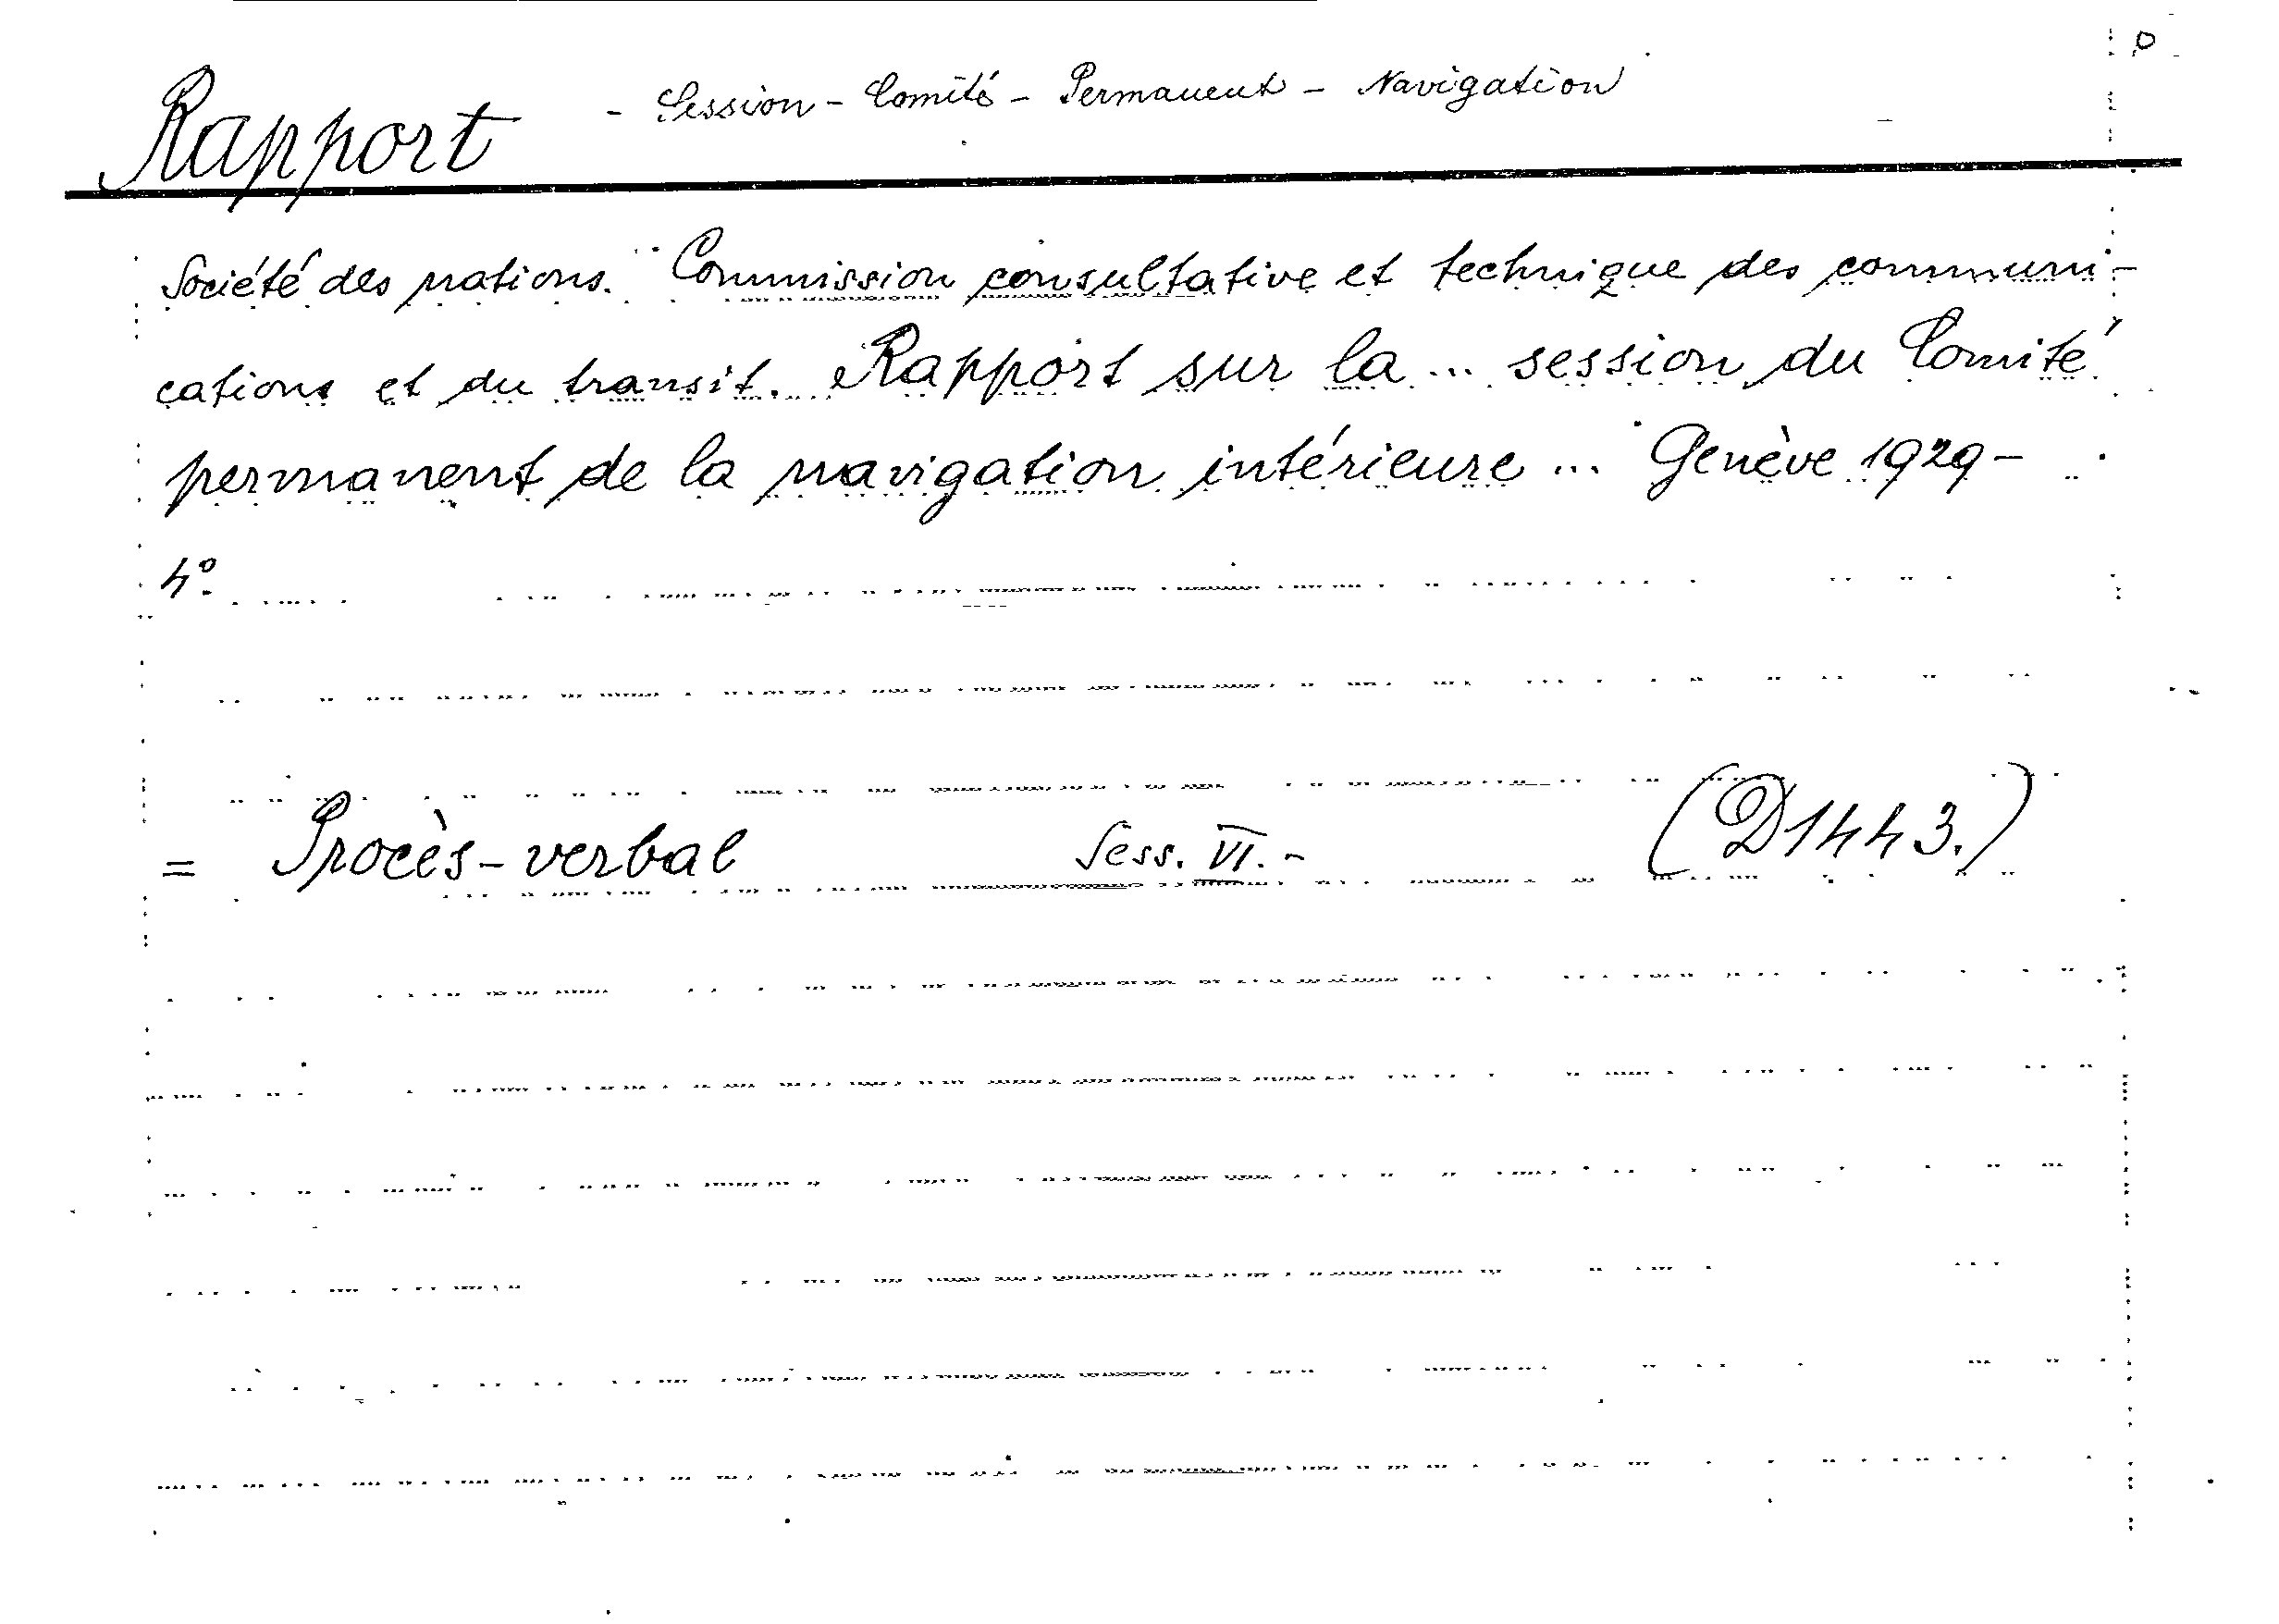 Rapport - Session - Comité - Permanent - Navigation
Société des nations. Commission consultative et technique des communi-
cations et du transit. Rapport sur la ... session du Comité
permanent de la navigation intérieure ... Genève 1929 -
4°.
= Procès-verbal Sess. VI. - (D1443.)